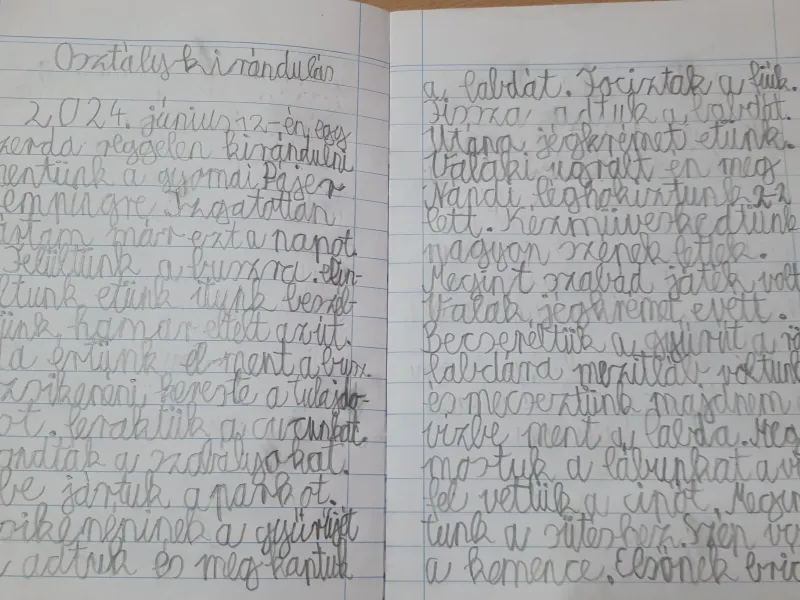 Osztálykirándulás
2024. június 12-én, egy
zerda reggelen kirándulni
mentünk a gyomai Pájer
empingre. Izgatottan
ártam már ezt a napot.
Felültünk a buszra. elin-
ltunk ettünk ittunk beszél-
ünk, hamar eltelt az út.
a értünk elment a busz.
zsikenéni kereste a tulajdo-
st. leraktük a cuccunkat.
ondták a szabályokat.
be jártuk a parkot.
sikenéninek a gyűrűjét
adtuk és megkaptuk
a labdát. Fociztak a fiúk.
Vissza adtuk a labdát.
Utána jégkrémet ettünk.
Valaki ugrált én meg
Nándi léghokiztunk 22
lett. Kézműveskedtünk
nagyon szépek lettek.
Megint szabad játék volt
Valak jégkrémet evett.
Becseréltük a gyűrűt a rö
labdára mezitláb voltunk
és mecseztünk majdnem
vízbe ment a labda. Meg
mostuk a lábunkat a v
fel vettük a cipőt. Megin
tunk a sütéshez. Szép vo
a kemence. Elsőnek eric